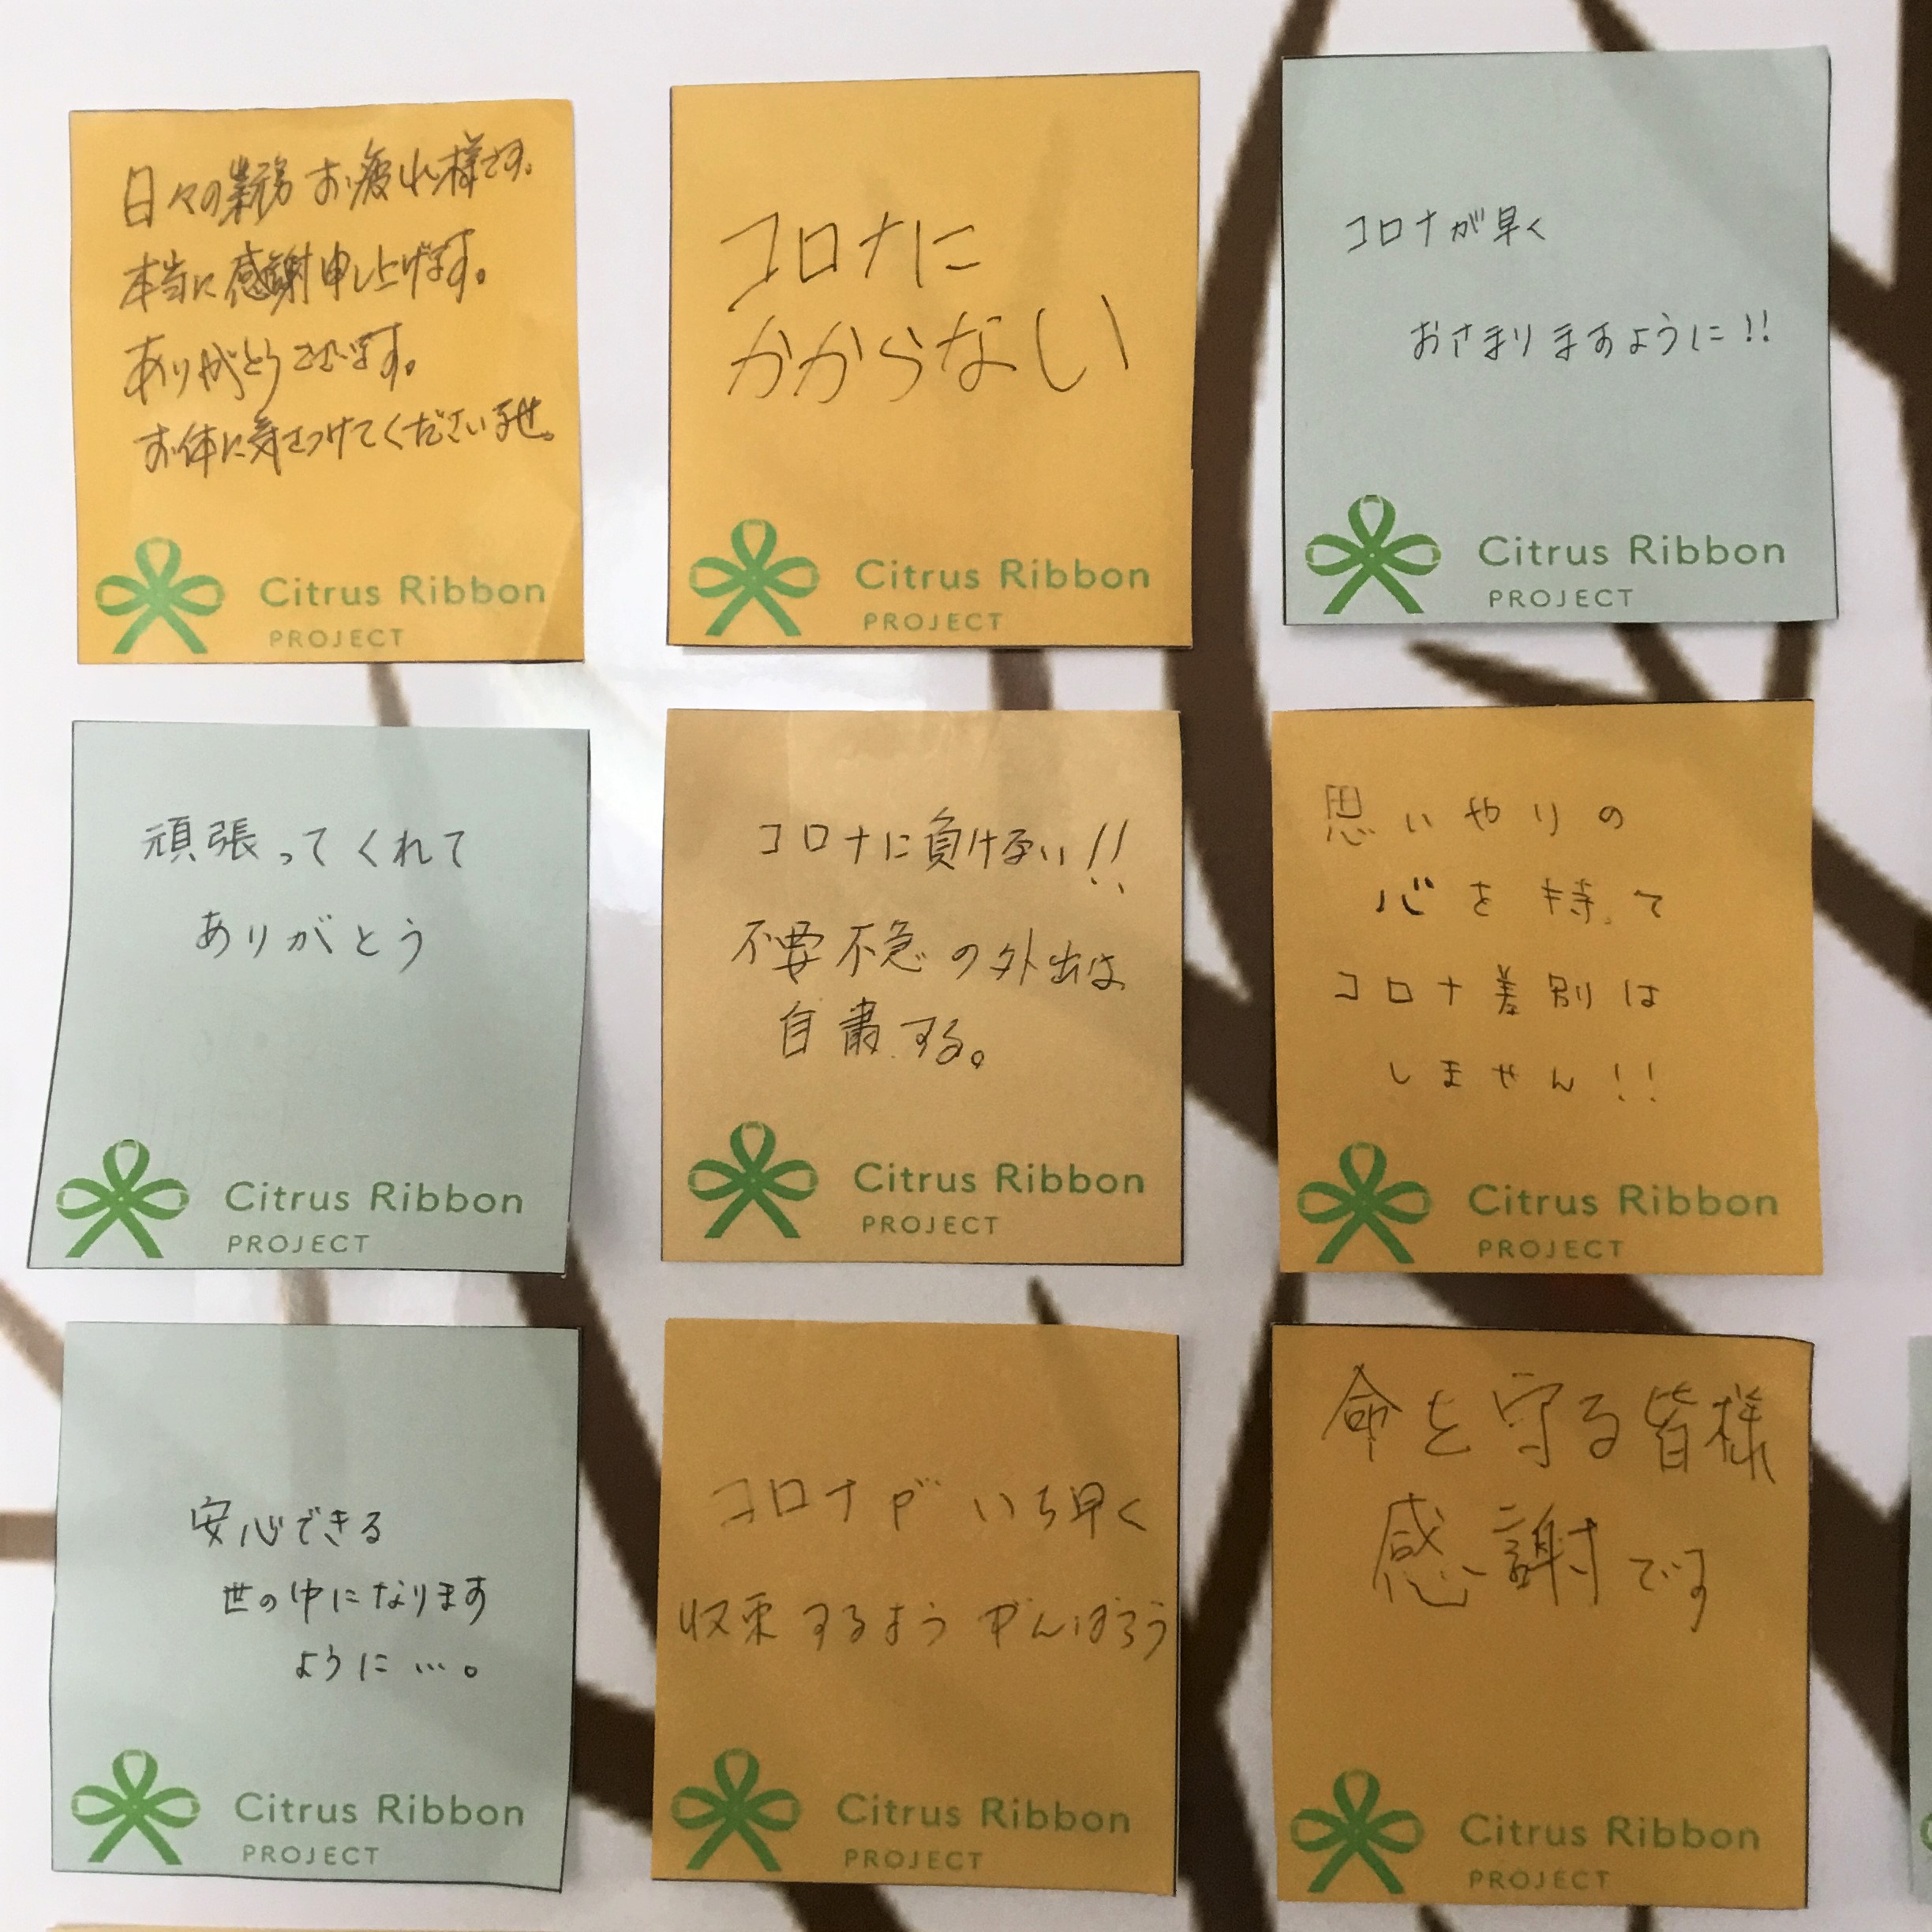 日々の業務お疲れ様です。
本当に感謝申し上げます。
ありがとうございます。
お体に気をつけてくださいませ。
Citrus Ribbon
PROJECT
コロナに
かからない
Citrus Ribbon
PROJECT
コロナが早く
おさまりますように!!
Citrus Ribbon
PROJECT
頑張ってくれて
ありがとう
Citrus Ribbon
PROJECT
コロナに負けない!!
不要不急の外出は
自粛する。
Citrus Ribbon
PROJECT
思いやりの
心を持って
コロナ差別は
しません!!
Citrus Ribbon
PROJECT
安心できる
世の中になります
ように…。
Citrus Ribbon
PROJECT
コロナがいち早く
収束するようがんばろう
Citrus Ribbon
PROJECT
命を守る皆様
感謝です
Citrus Ribbon
PROJECT